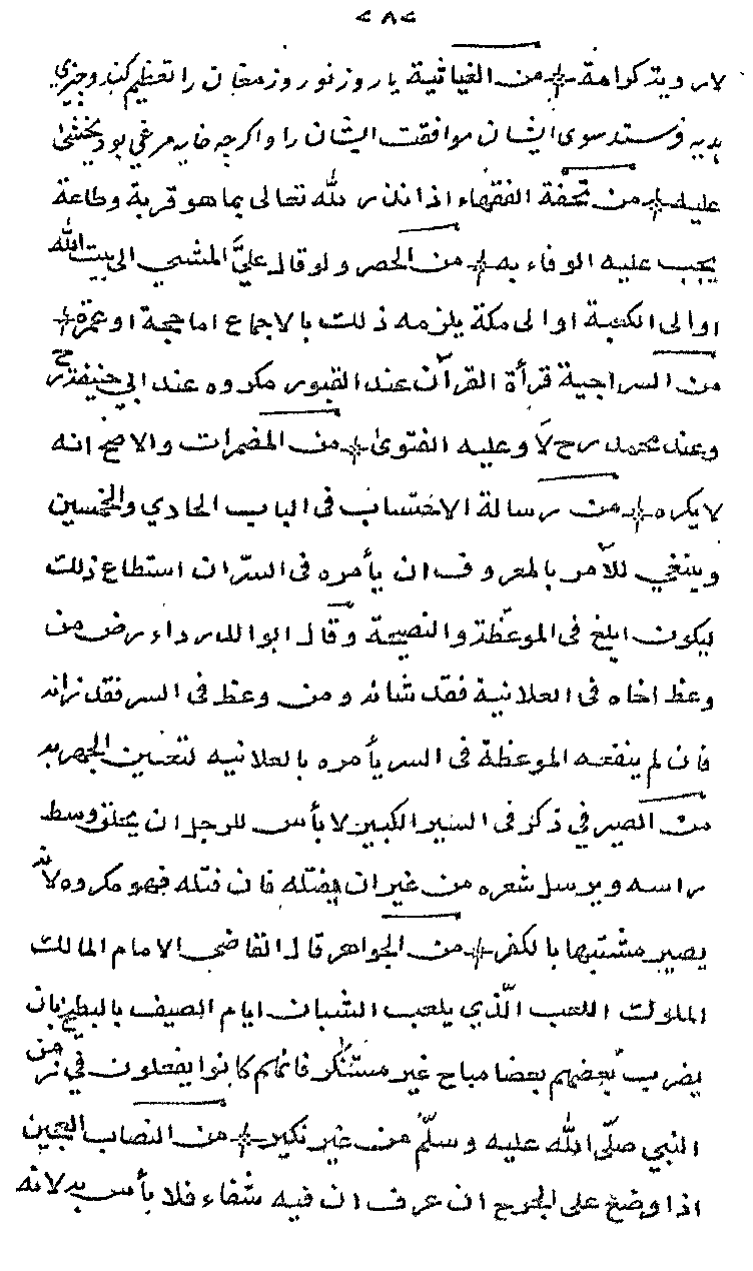 ٢٨٢
لا رويتر كراهة من الغياثية يا روز نوروز مغان را تعظيم كند وچيزي
هديه فرستد سوى ايشان موافقت ايشان را واكرچه خايه مرغي بود يخشى
عليه من تحفة الفقهاء اذا نذر لله تعالى بما هو قربة وطاعة
يجب عليه الوفاء به من الحصر ولو قال عليَّ المشي الى بيت الله
او الى الكعبة او الى مكة يلزمه ذلك بالاجماع اما حجة او عمرة
من السراجية قرأة القرآن عند القبور مكروه عند ابي حنيفة رح
وعند محمد رح لا وعليه الفتوى من المضمرات والاصح انه
لا يكره من رسالة الاحتساب فى الباب الحادي والخمسين
وينبغي للآمر بالمعروف ان يأمره فى السرّ ان استطاع ذلك
ليكون ابلغ فى الموعظة والنصيحة وقال ابو الدرداء رض من
وعظ اخاه فى العلانية فقد شانه ومن وعظ فى السر فقد زانه
فان لم ينفعه الموعظة فى السر يأمره بالعلانيه لتعين الجهر به
من الصيرفي ذكر فى السير الكبير لا بأس للرجل ان يحلق وسط
راسه ويرسل شعره من غير ان يفتله فان فتله فهو مكروه لانه
يصير مشتبها بالكفر من الجواهر قال القاضى الامام المالك
الملوك اللعب الّذي يلعب الشبان ايام الصيف بالبطيخ بان
يضرب بعضهم بعضا مباح غير مستنكر فانهم كانوا يفعلون في زمن
النبي صلّى الله عليه وسلّم من غير نكير من النصاب العجين
اذا وضع على الجرح ان عرف ان فيه شفاء فلا بأس به لانه